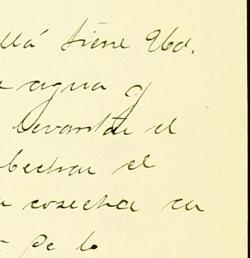 allá tiene Ud.
agua y
levantar el
el
cosecha en
de lo